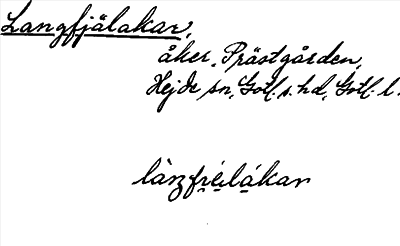 Langfjälakar,
åker, Prästgården,
Hejde sn, Gotl. s. hd, Gotl. l.
làŋzfrẹilákar